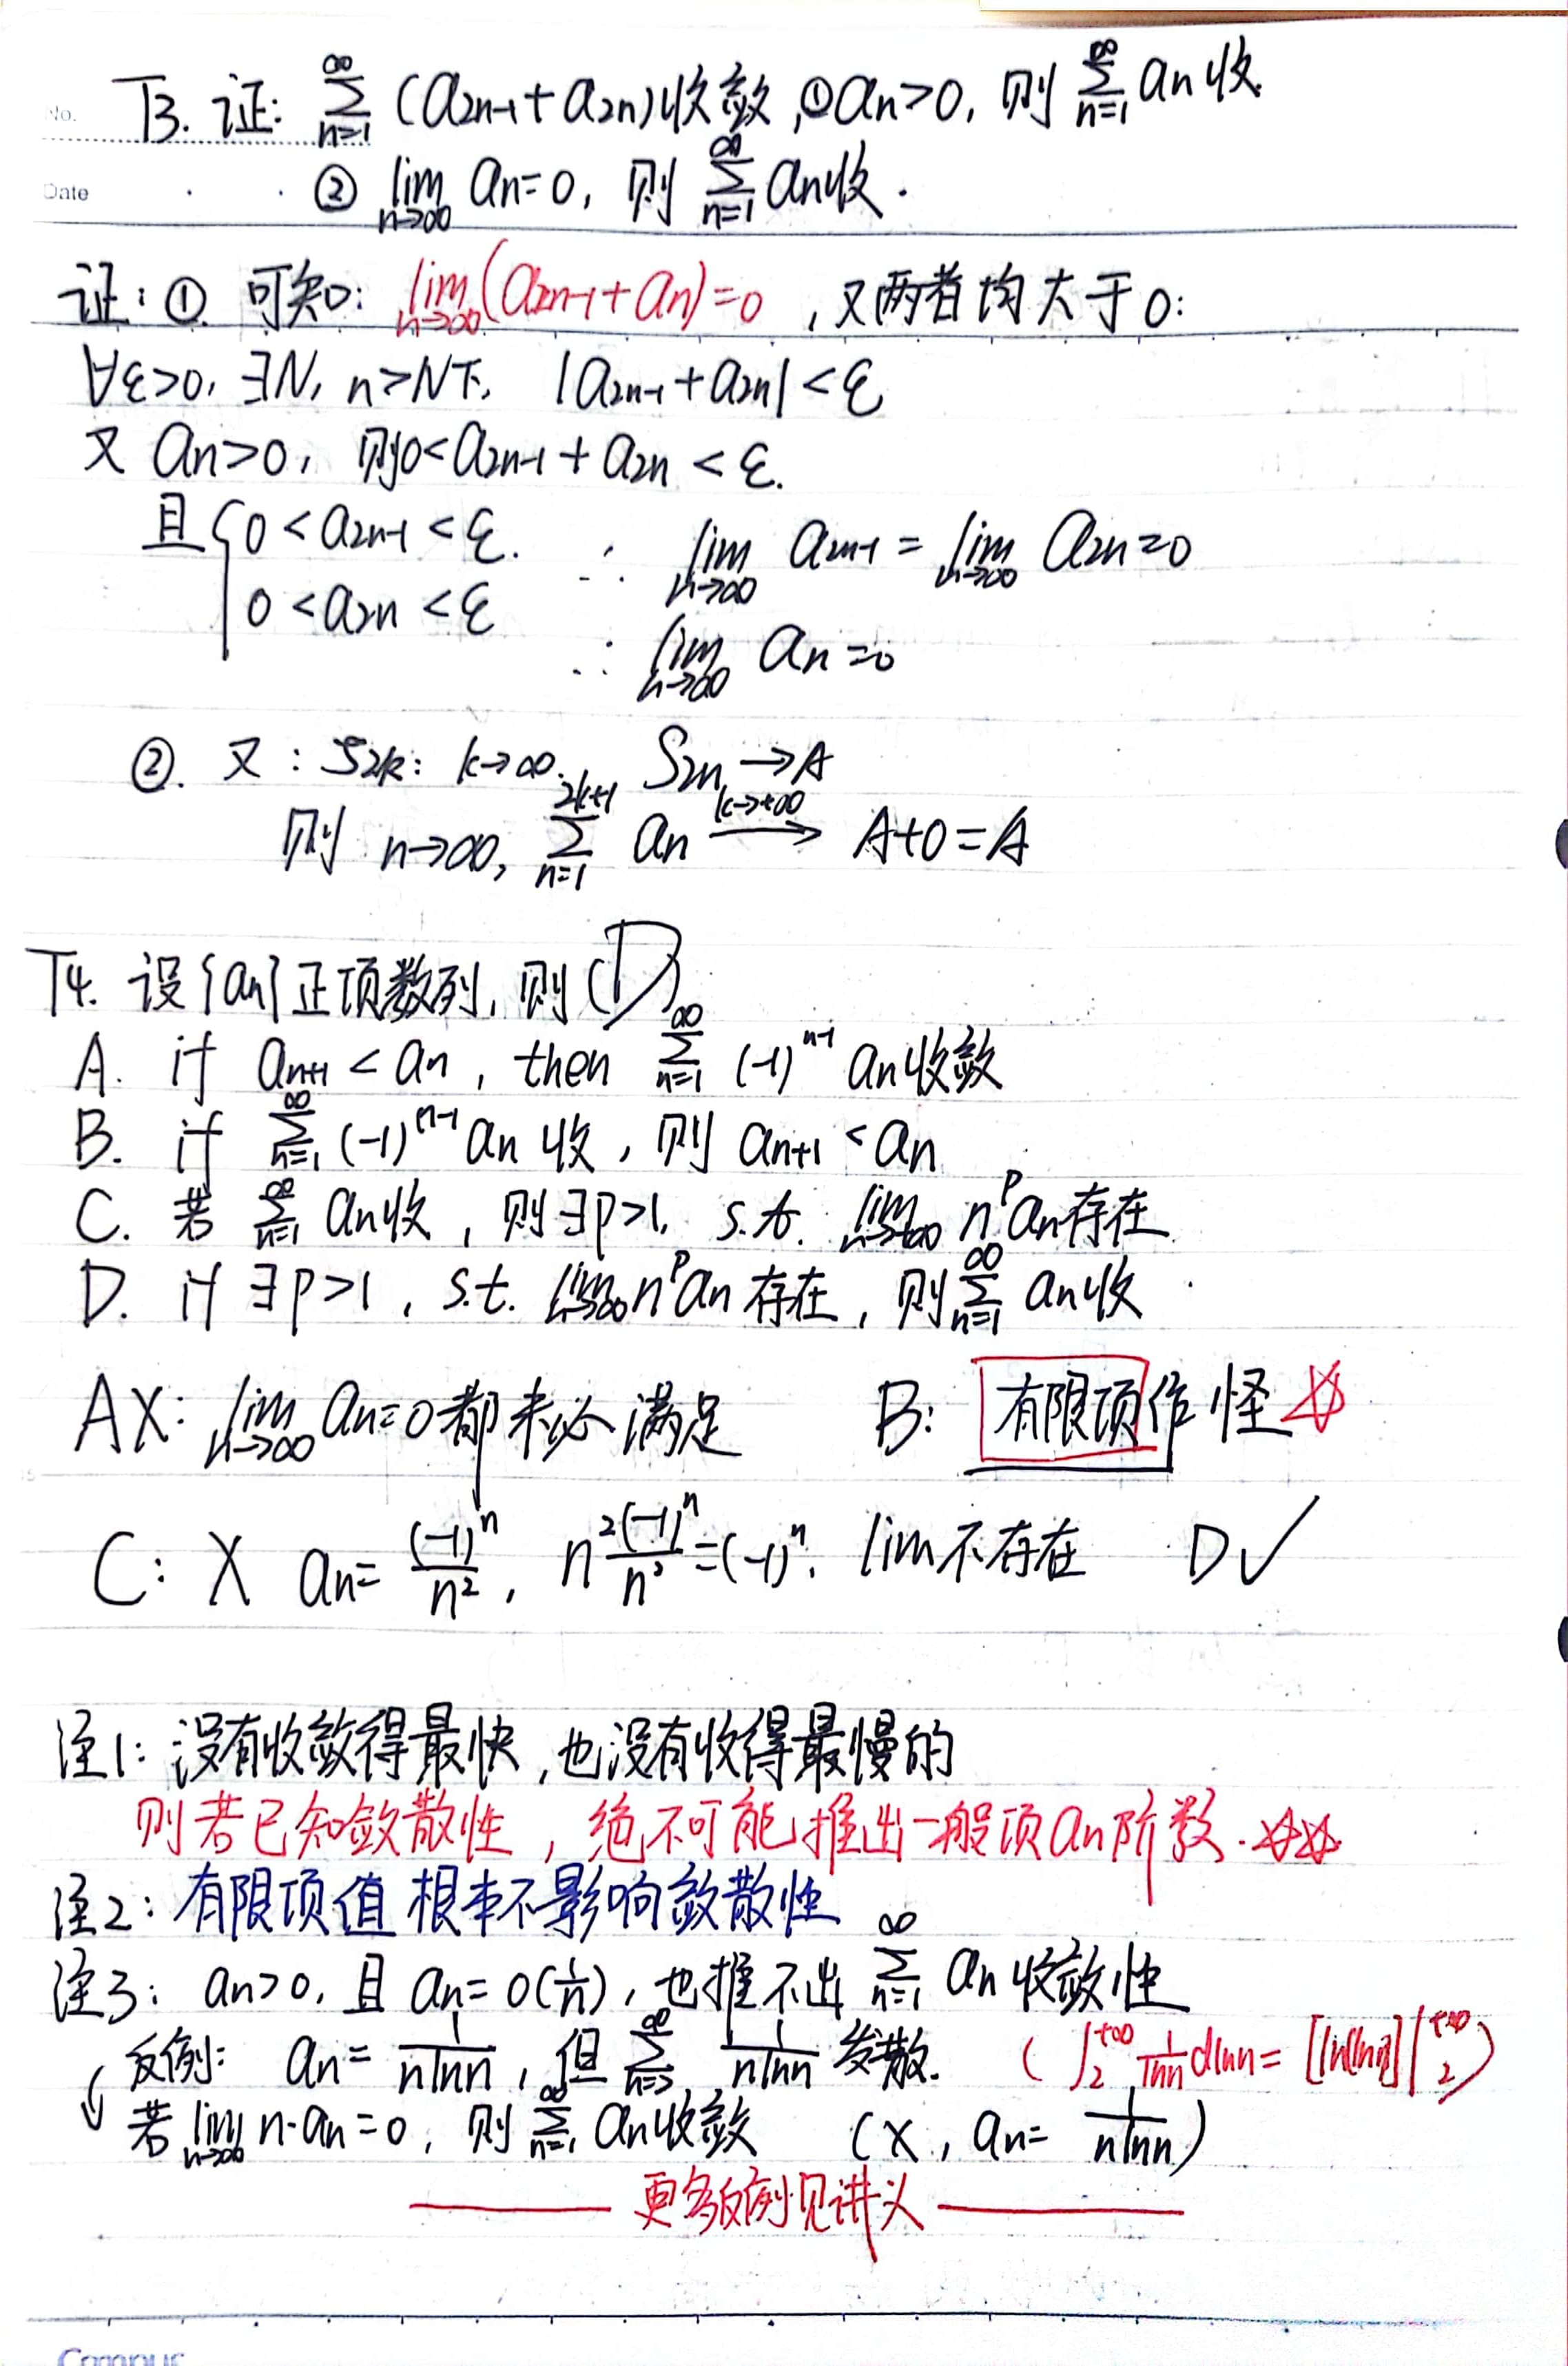 No.
T3. 证: $\sum_{n=1}^{\infty}(a_{2n-1}+a_{2n})$收敛, ①$a_n>0$, 则 $\sum_{n=1}^{\infty}a_n$收.
Date
② $\lim_{n\to\infty}a_n=0$, 则 $\sum_{n=1}^{\infty}a_n$收.
证: ① 可知: $\lim_{n\to\infty}(a_{2n-1}+a_n)=0$, 又两者均大于0:
$\forall\varepsilon>0$, $\exists N$, $n>N$下, $|a_{2n-1}+a_{2n}|<\varepsilon$
又 $a_n>0$, 则$0<a_{2n-1}+a_{2n}<\varepsilon$.
且 { $0<a_{2n-1}<\varepsilon$. ∴ $\lim_{n\to\infty}a_{2n-1}=\lim_{n\to\infty}a_{2n}=0$
$0<a_{2n}<\varepsilon$
∴ $\lim_{n\to\infty}a_n=0$
②. 又: $S_{2k}$: $k\to\infty$. $S_{2n}\to A$
则 $n\to\infty$, $\sum_{n=1}^{2k+1}a_n\xrightarrow{k\to+\infty}A+0=A$
T4. 设$\{a_n\}$正项数列, 则(D)
A. if $a_{n+1}<a_n$, then $\sum_{n=1}^{\infty}(-1)^{n-1}a_n$收敛
B. if $\sum_{n=1}^{\infty}(-1)^{n-1}a_n$ 收, 则 $a_{n+1}<a_n$
C. 若 $\sum_{n=1}^{\infty}a_n$收, 则$\exists p>1$, s.t. $\lim_{n\to\infty}n^pa_n$存在
D. if $\exists p>1$, s.t. $\lim_{n\to\infty}n^pa_n$ 存在, 则$\sum_{n=1}^{\infty}a_n$收
AX: $\lim_{n\to\infty}a_n=0$都未必满足 B: 有限项作怪☆
C: X $a_n=\frac{(-1)^n}{n^2}$, $n^2\frac{(-1)^n}{n^2}=(-1)^n$, lim不存在 D✓
注1: 没有收敛得最快, 也没有收得最慢的
则若已知敛散性, 绝不可能推出一般项$a_n$阶数.☆☆
注2: 有限项值根本不影响敛散性
注3: $a_n>0$, 且 $a_n=o(\frac{1}{n})$, 也推不出 $\sum_{n=1}^{\infty}a_n$收敛性
反例: $a_n=\frac{1}{n\ln n}$, 但 $\sum_{n=2}^{\infty}\frac{1}{n\ln n}$发散. ($\int_2^{+\infty}\frac{1}{\ln n}d\ln n=[\ln(\ln n)]|_2^{+\infty}$)
若$\lim_{n\to\infty}n\cdot a_n=0$, 则$\sum_{n=1}^{\infty}a_n$收敛 (X, $a_n=\frac{1}{n\ln n}$)
—— 更多反例见讲义 ——
Campus